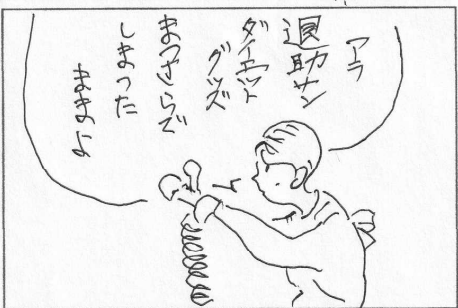 アラ
退助サン
ダイエット
グッズ
まっさらで
しまった
ままよ